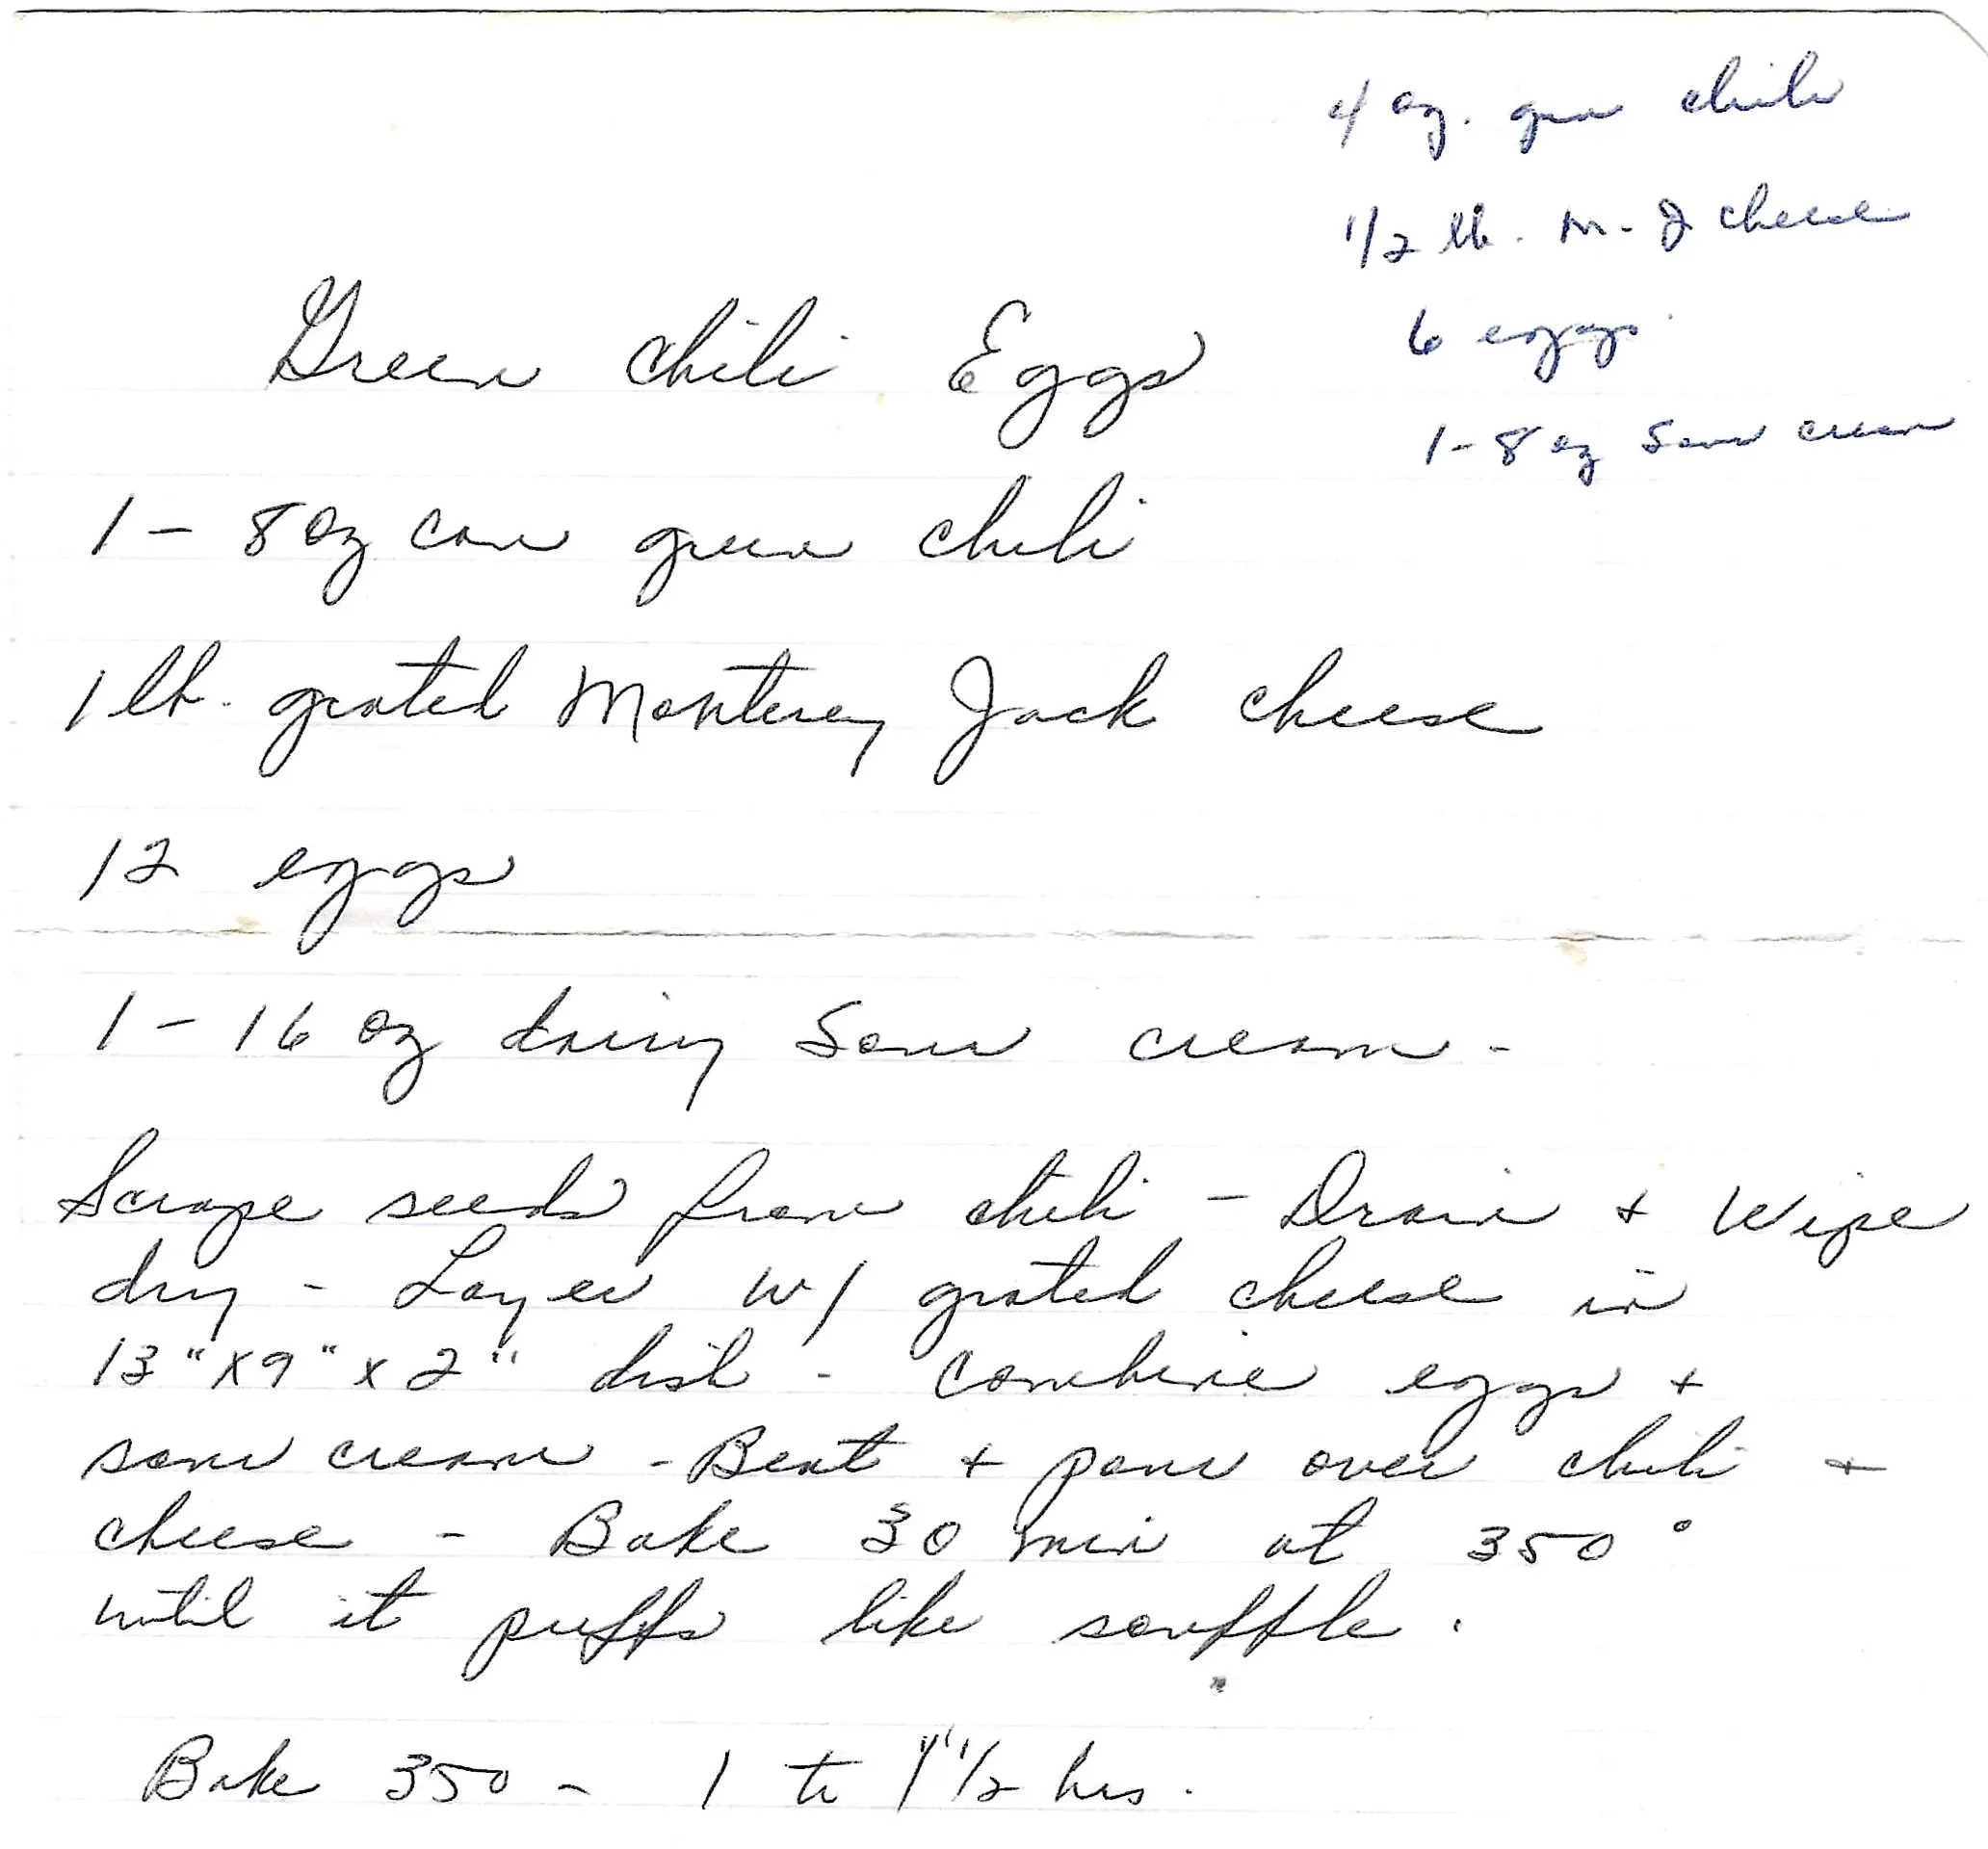 4 oz. green chili
1/2 lb. M-J cheese
6 eggs
1-8 oz sour cream
Green Chili Eggs
1 - 8 oz can green chili
1 lb. grated Monterey Jack cheese
12 eggs
1 - 16 oz dairy sour cream -
Scrape seeds from chili - Drain + Wipe
dry - Layer w/ grated cheese in
13" x 9" x 2" dish - Combine eggs +
sour cream - Beat + pour over chili +
cheese - Bake 30 min at 350°
until it puffs like souffle.
Bake 350 - 1 to 1 1/2 hrs.